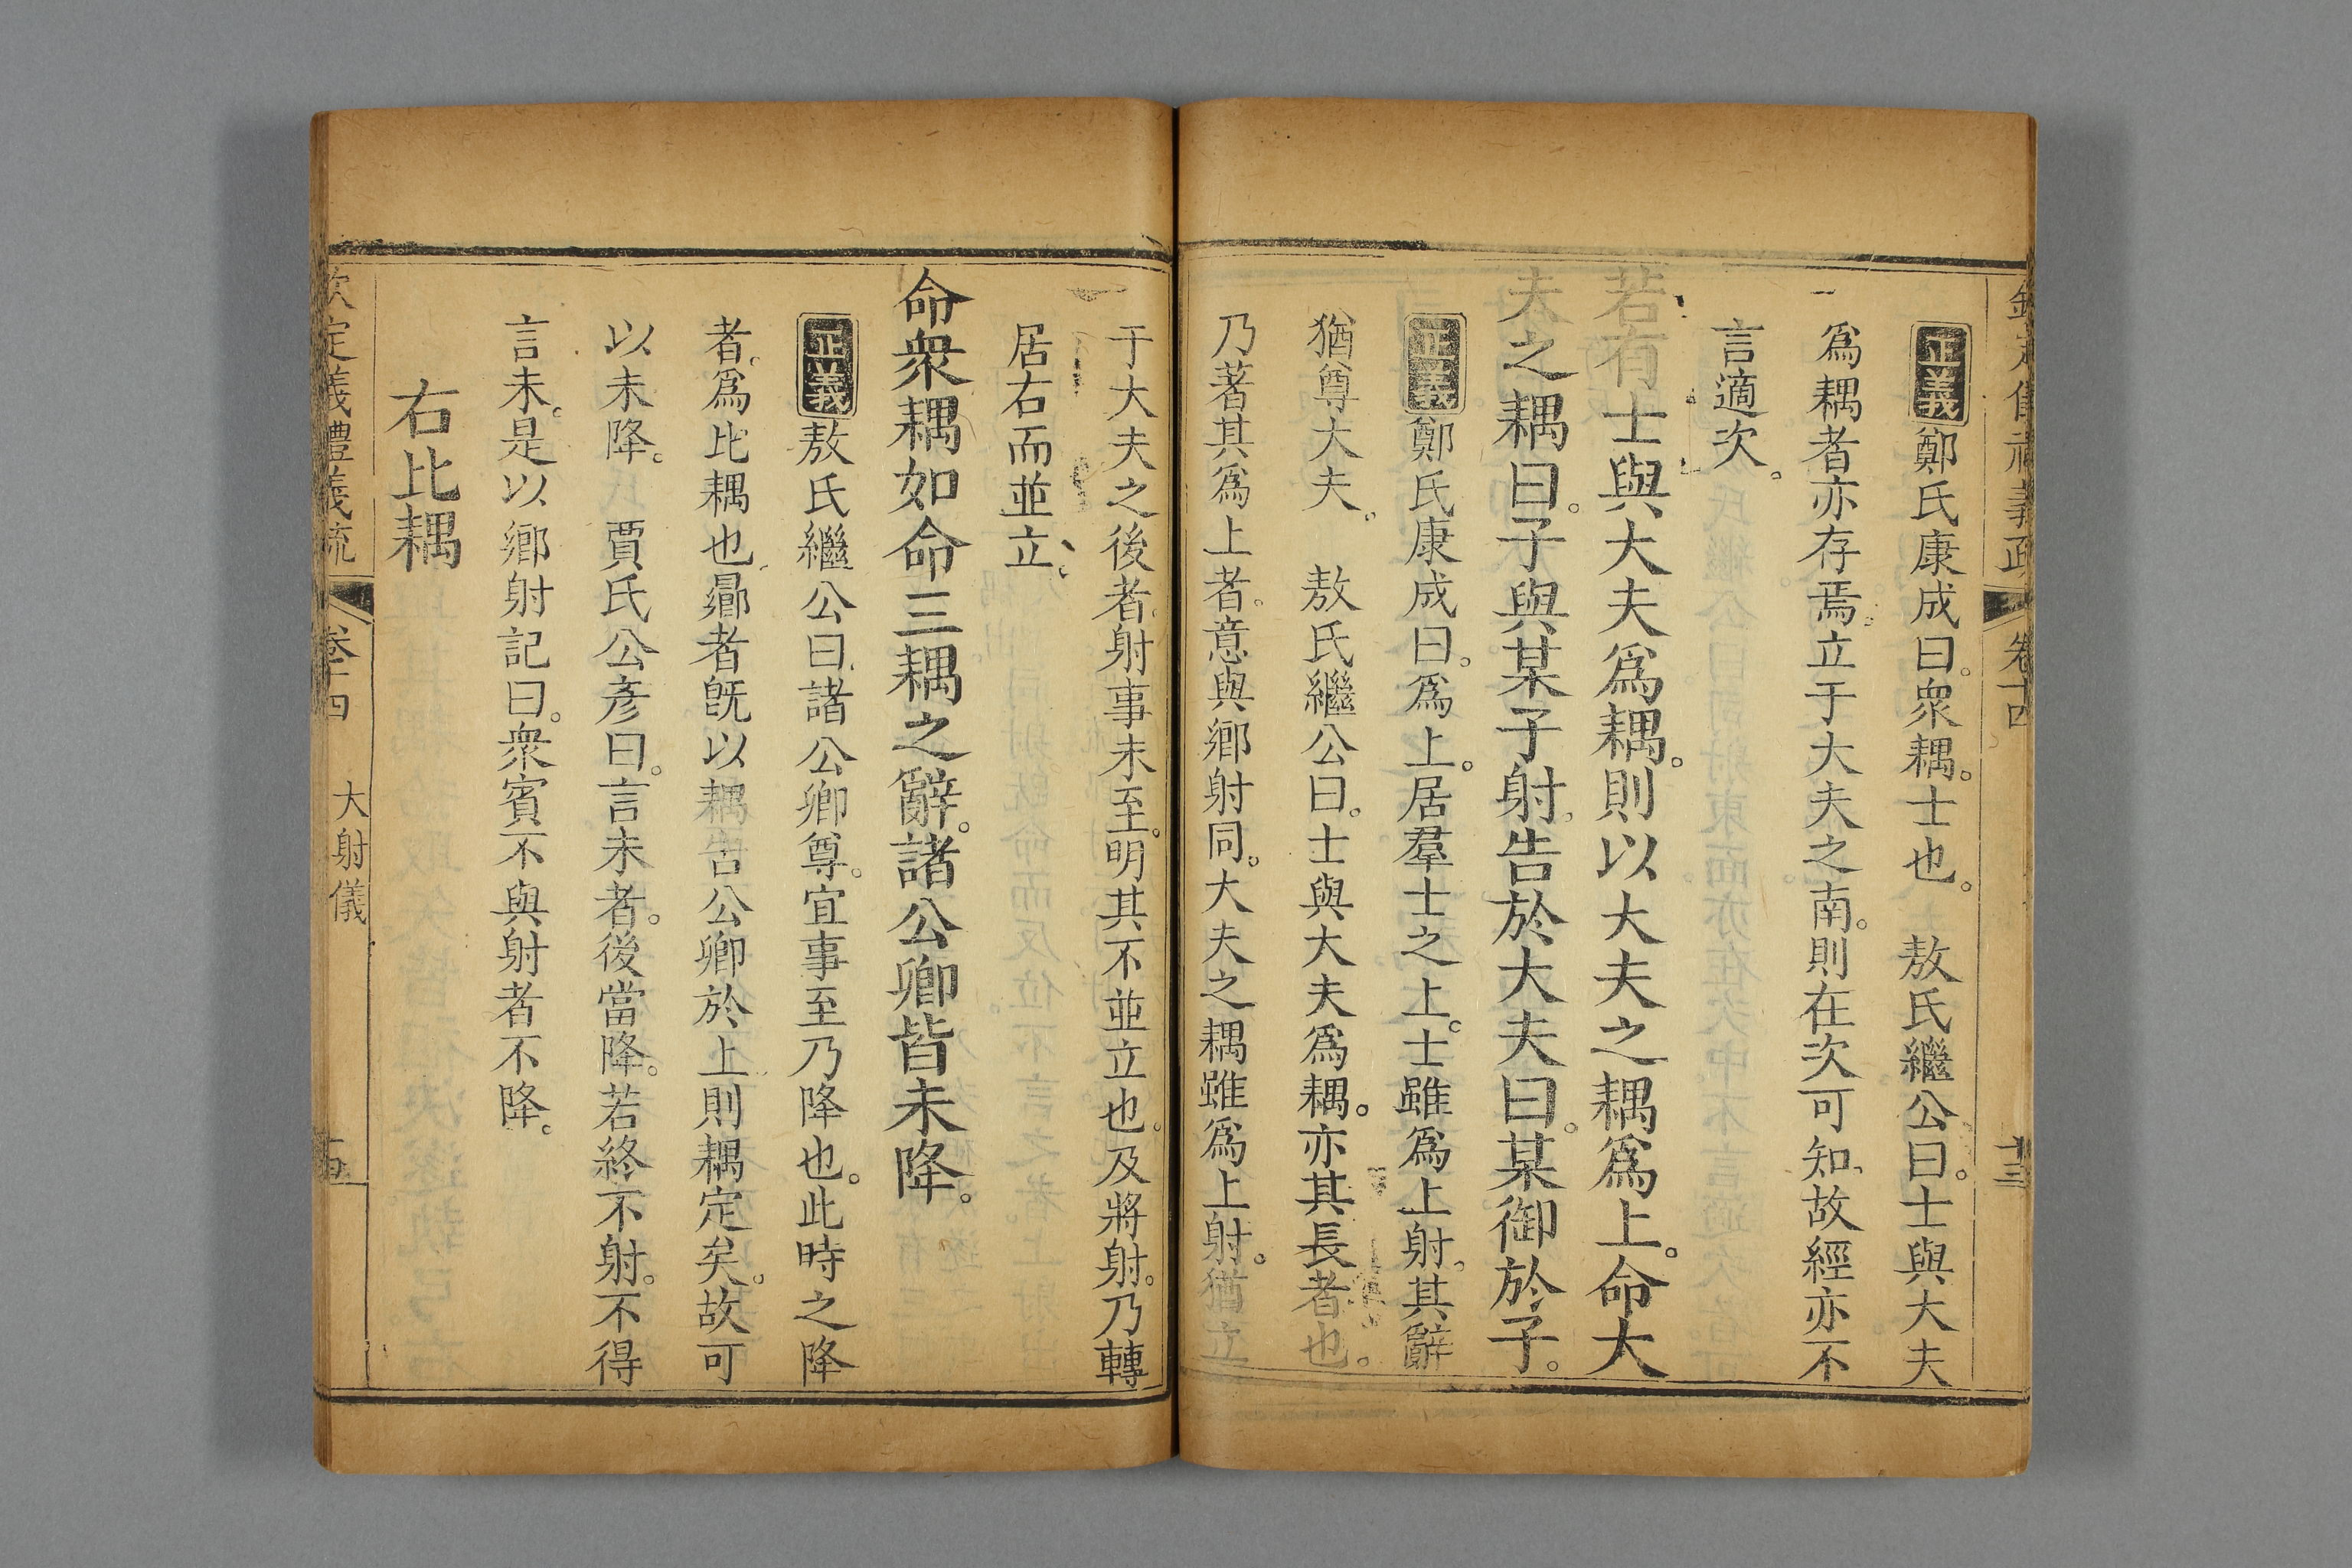 欽定儀禮義疏 卷十四 十三
正義鄭氏康成曰。衆耦。士也。 敖氏繼公曰。士與大夫
爲耦者亦存焉。立于大夫之南。則在次可知。故經亦不
言適次。
若有士與大夫爲耦。則以大夫之耦爲上。命大
夫之耦曰。子與某子射。告於大夫曰。某御於子。
正義鄭氏康成曰。爲上。居羣士之上。士雖爲上射。其辭
猶尊大夫。 敖氏繼公曰。士與大夫爲耦。亦其長者也。
乃著其爲上者。意與鄉射同。大夫之耦雖爲上射。猶立
于大夫之後者。射事未至。明其不並立也。及將射。乃轉
居右而並立。
命衆耦如命三耦之辭。諸公卿皆未降。
正義敖氏繼公曰。諸公卿尊。宜事至乃降也。此時之降
者。爲比耦也。曏者旣以耦告公卿於上。則耦定矣。故可
以未降。 賈氏公彥曰。言未者。後當降。若終不射。不得
言未。是以鄉射記曰。衆賓不與射者不降。
右比耦
欽定儀禮義疏 卷十四 大射儀